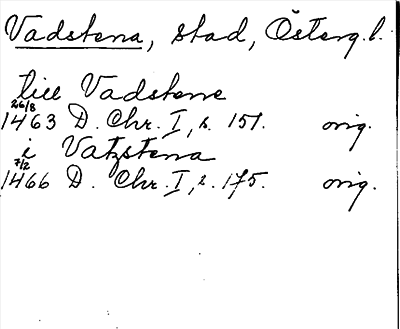 Vadstena, stad, Österg.l.
till Vadstene
26/8
1463 D. Chr. I, s. 151. orig.
i Vatzstena
7/2
1466 D. Chr. I, s. 175. orig.